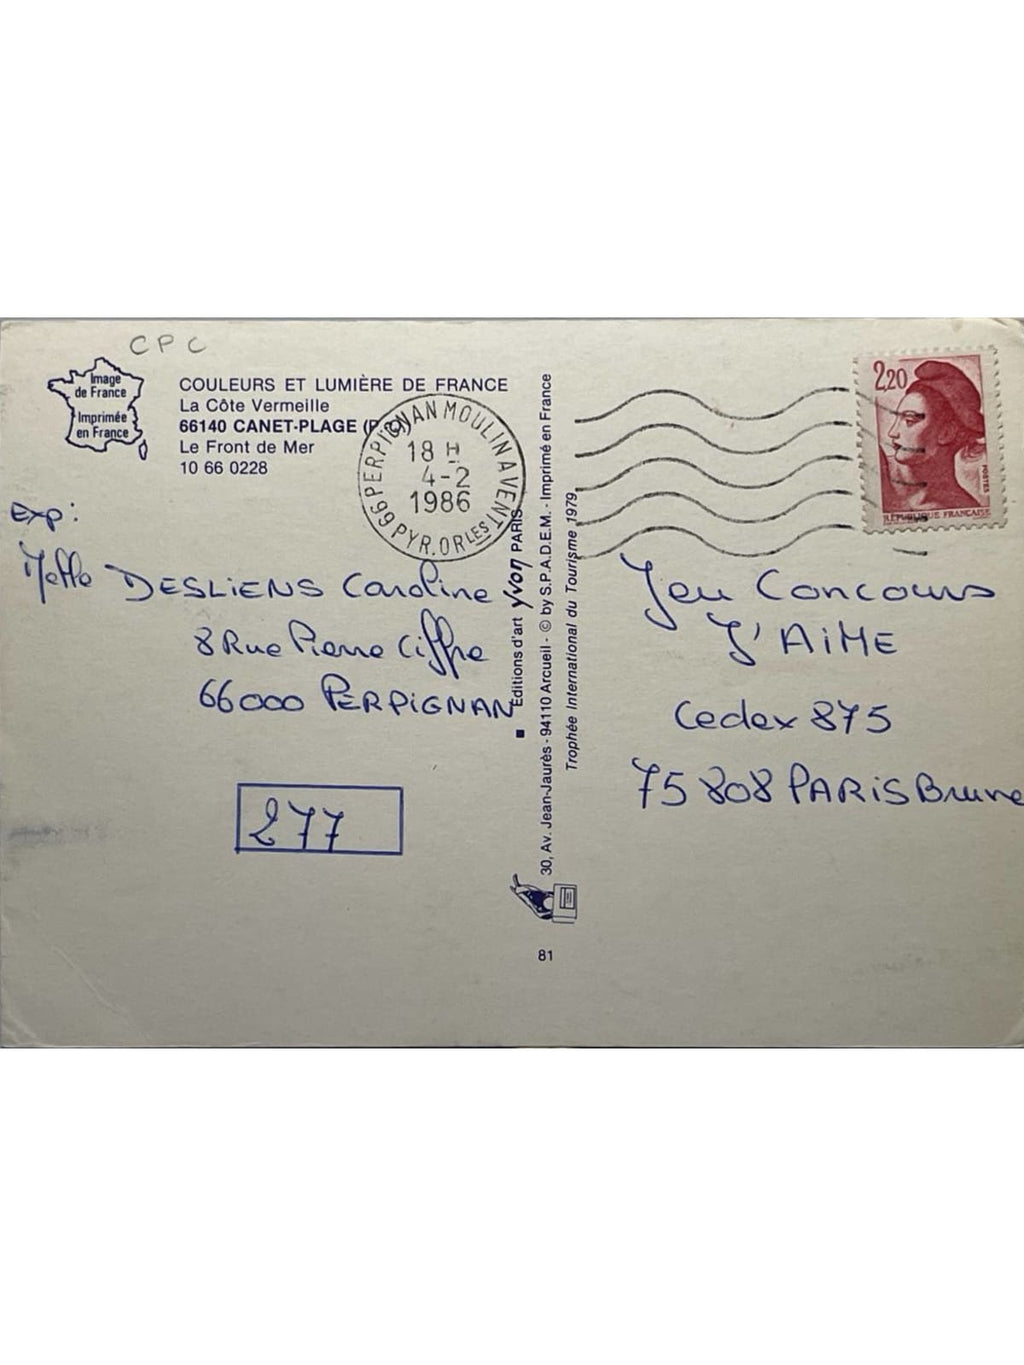 CPC
Image
de France
Imprimée
en France
COULEURS ET LUMIÈRE DE FRANCE
La Côte Vermeille
66140 CANET-PLAGE (P.-O.)
Le Front de Mer
10 66 0228
66 PERPIGNAN MOULIN A VENT
18 H
4-2
1986
PYR. ORLES
2,20
POSTES
RÉPUBLIQUE FRANÇAISE
Exp:
Melle DESLIENS Caroline
8 Rue Pierre Ciffre
66000 PERPIGNAN
277
Editions d'art Yvon PARIS
30, Av. Jean-Jaurès - 94110 Arcueil - © by S.P.A.D.E.M. - Imprimé en France
Trophée International du Tourisme 1979
81
Jeu Concours
J'AIME
Cedex 875
75 808 PARIS Brune